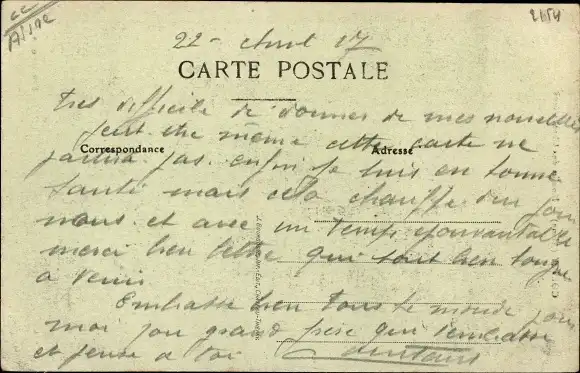 Aisne
2154
22 - Avril 17
CARTE POSTALE
très difficile de donner de mes nouvelles
peut être même cette carte ne
Correspondance
Adresse
partira pas. enfin je suis en bonne
santé mais cela chauffe dur pour
nous et avec un temps épouvantable
merci bien lettre qui sont bien longue
a venir
Embrasse bien tous le monde pour
moi ton grand frère qui t'embrasse
et pense a toi